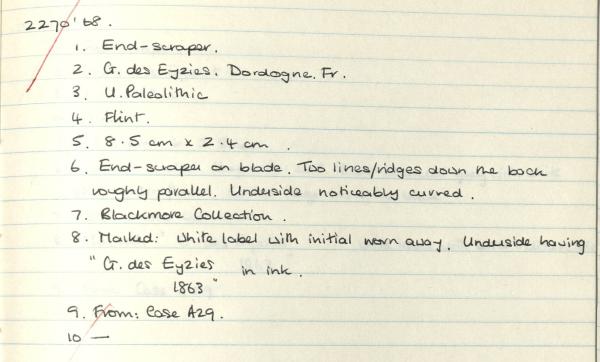 2270'68.
1. End-scraper.
2. G. des Eyzies. Dordogne. Fr.
3. U. Paleolithic
4. Flint.
5. 8.5 cm x 2.4 cm .
6. End-scraper on blade. Two lines/ridges down the back
roughly parallel. Underside noticeably curved.
7. Blackmore Collection.
8. Marked: White label with initial worn away. Underside having
"G. des Eyzies in ink.
1863"
9. From: Case A29.
10 —